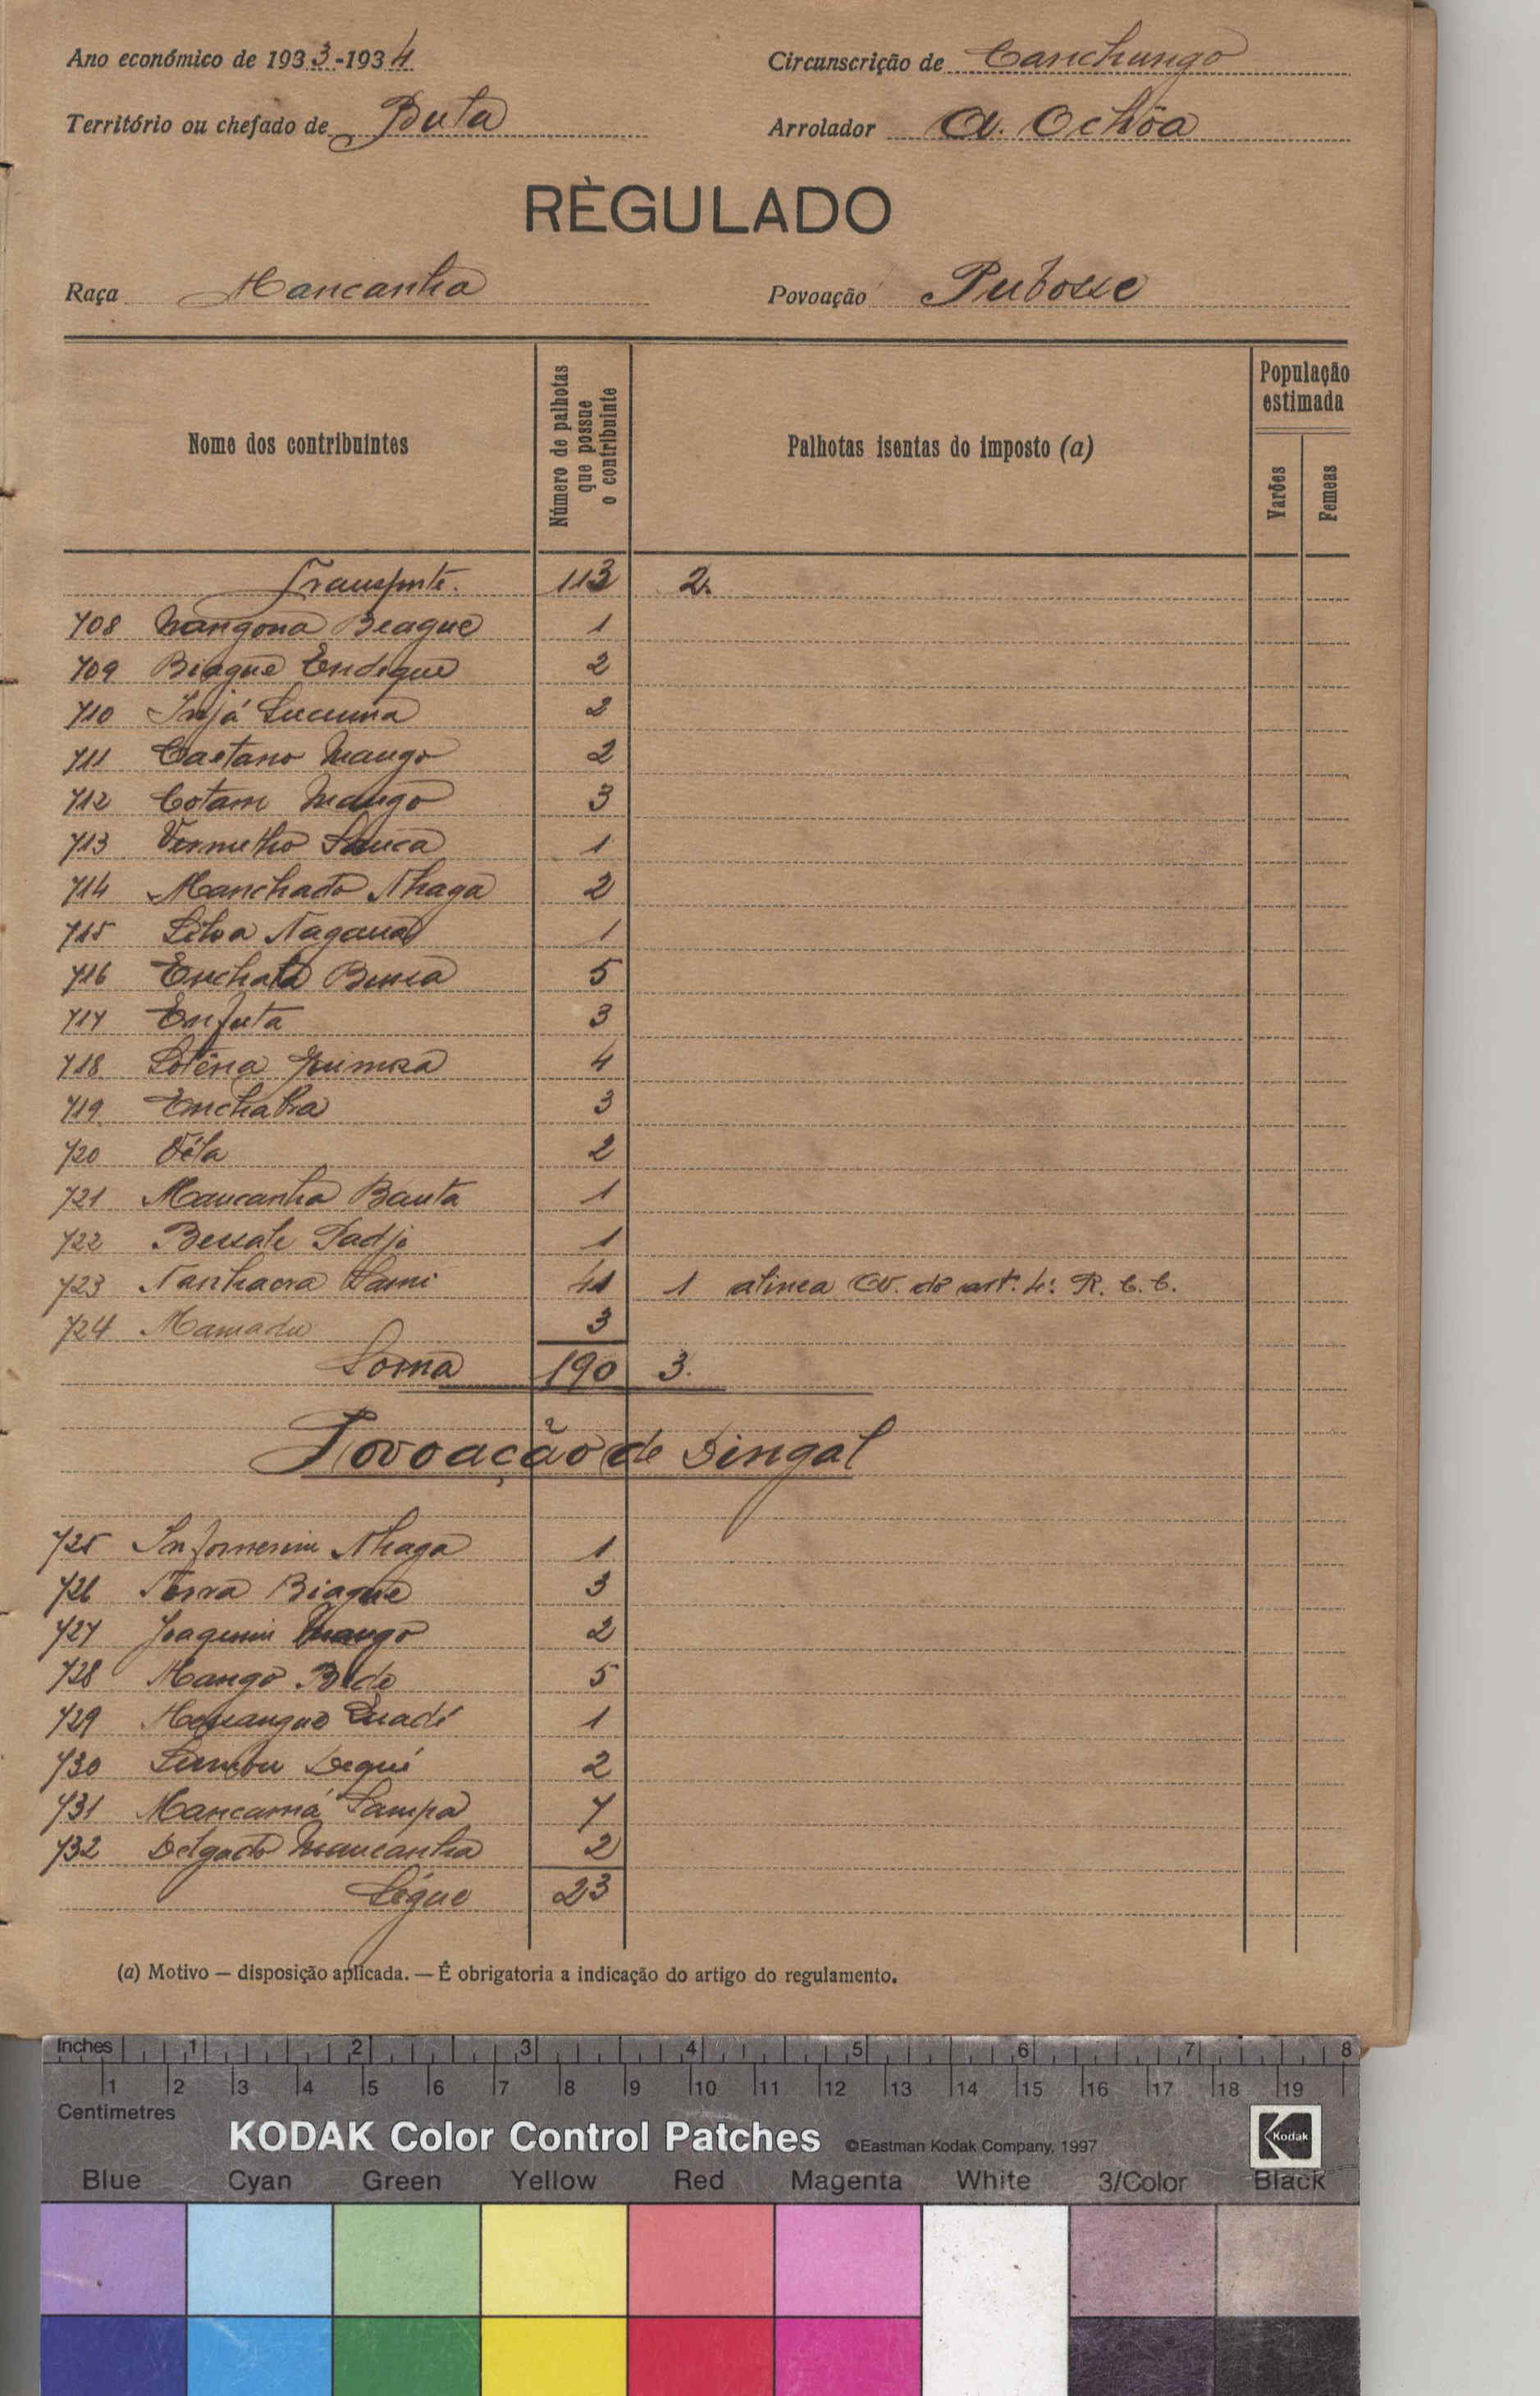 Ano económico de 1933-1934
Circunscrição de Canchungo
Território ou chefado de Buta
Arrolador A. Ochôa
RÈGULADO
Raça Mancanha
Povoação Pubosse
Nome dos contribuintes
Número de palhotas que possue o contribuinte
Palhotas isentas do imposto (a)
População estimada
Varões
Femeas
Transporte. 113 2.
708 Mangona Beague 1
709 Biague Endeque 2
710 Injá Lucuma 2
711 Caetano Mango 2
712 Cotam Mango 3
713 Vermelho Sanca 1
714 Manchado Nhaga 2
715 Silva Nagana 1
716 Enchalá 5
717 Enfuta 3
718 4
719 Enchabra 3
720 Véla 2
721 Mancanha Banta 1
722 Bessale Dadji 1
723 41 1 alinea do art. 4: R. C. C.
724 Mamadu 3
Soma 190 3.
Povoação de Dingal
725 Nhaga 1
726 Terra Biague 3
727 Joaquim Mango 2
728 Mango 5
729 1
730 Dequi 2
731 Sampa 7
732 Delgado Mancanha 2
Ségue 23
(a) Motivo — disposição aplicada. — É obrigatoria a indicação do artigo do regulamento.
Inches 1 2 3 4 5 6 7 8
1 2 3 4 5 6 7 8 9 10 11 12 13 14 15 16 17 18 19
Centimetres
KODAK Color Control Patches ©Eastman Kodak Company, 1997 Kodak
Blue Cyan Green Yellow Red Magenta White 3/Color Black